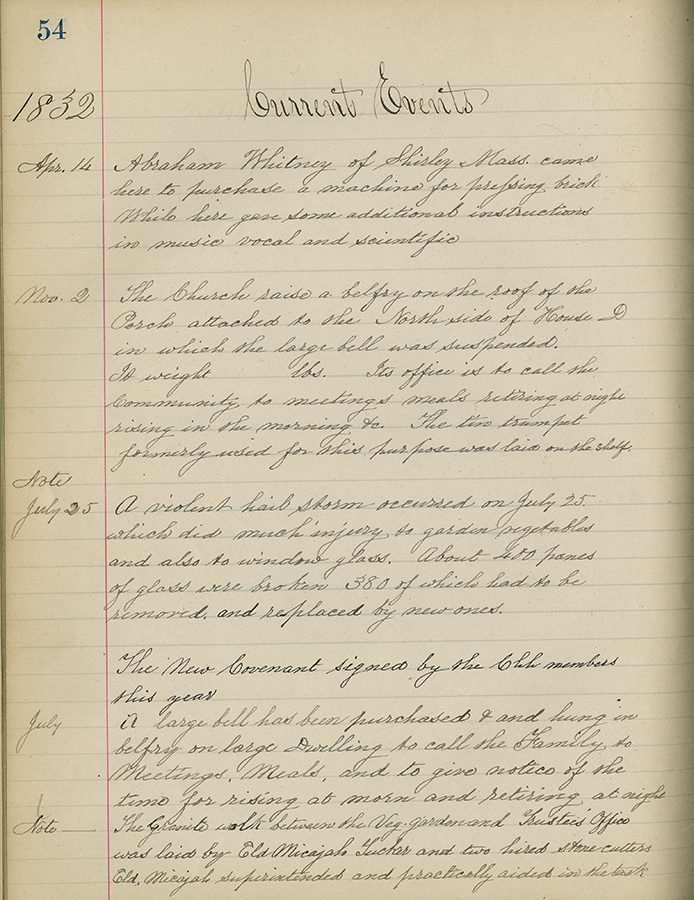 54
Current Events
1832
Apr. 14 Abraham Whitney of Shirley Mass. came
here to purchase a machine for pressing brick
While here gave some additional instructions
in music vocal and scientific
Nov. 2 The Church raise a belfry on the roof of the
Porch attached to the North side of House D
in which the large bell was suspended.
It weight lbs. Its office is to call the
Community to meetings meals retiring at night
rising in the morning &c. The tin trumpet
formerly used for this purpose was laid on the shelf.
Note
July 25 A violent hail storm occurred on July 25.
which did much injury to garden vegetables
and also to window glass. About 400 panes
of glass were broken 380 of which had to be
removed, and replaced by new ones.
The New Covenant signed by the Chh members
this year
July A large bell has been purchased & and hung in
belfry on large Dwelling to call the Family to
Meetings, Meals, and to give notice of the
time for rising at morn and retiring at night
Note — The Granite walk between the Veg. garden and Trustees Office
was laid by Eld Micajah Tucker and two hired stone cutters
Eld. Micajah superintended and practically aided in the task